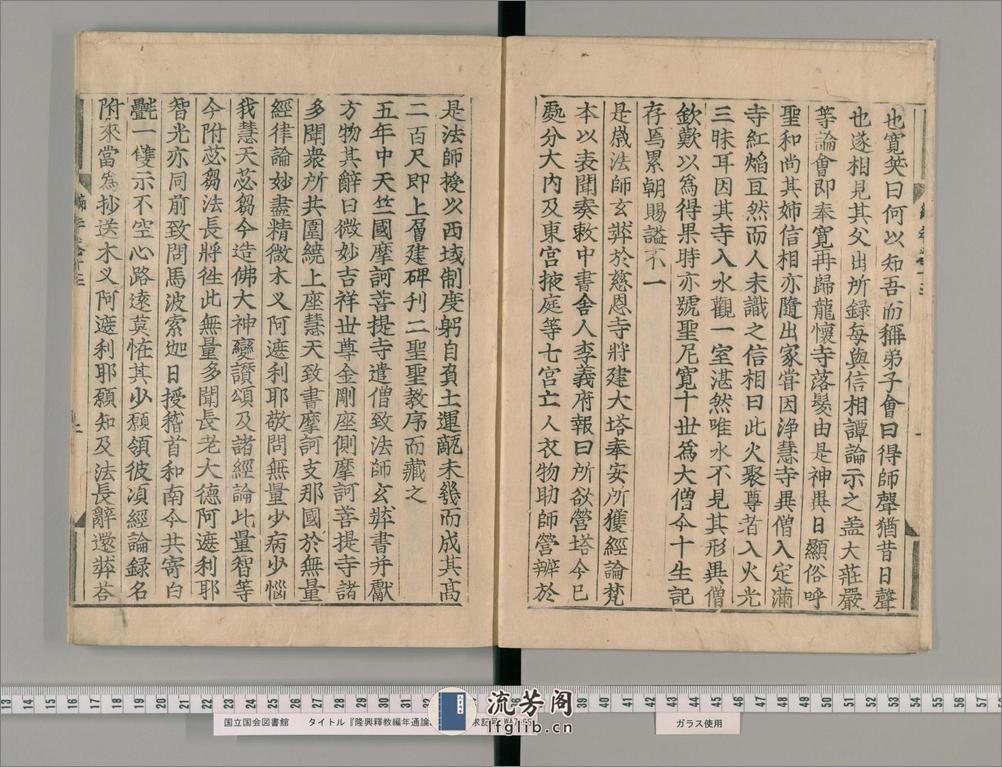 也寬笑曰何以知吾而稱弟子會曰得師聲猶昔日聲
也遂相見其父出所録每與信相譚論示之盖大莊嚴
等論會即奉寬再歸龍懷寺落髮由是神異日顯俗呼
聖和尚其姊信相亦隨出家嘗因淨慧寺異僧入定滿
寺紅焰亘然而人未識之信相曰此火聚尊者入火光
三昧耳因其寺入水觀一室湛然唯水不見其形異僧
欽歎以爲得果時亦號聖尼寬十世爲大僧今十生記
存焉累朝賜謚不一
是歲法師玄奘於慈恩寺將建大塔奉安所獲經論梵
本以表聞奏敕中書舍人李義府報曰所欲營塔今已
處分大内及東宫掖庭等七宫亡人衣物助師營辦於
是法師授以西域制度躬自負土運甎未幾而成其髙
二百尺即上層建碑刊二聖聖教序而藏之
五年中天竺國摩訶菩提寺遣僧致法師玄奘書并獻
方物其辭曰微妙吉祥世尊金剛座側摩訶菩提寺諸
多聞衆所共圍繞上座慧天致書摩訶支那國於無量
經律論妙盡精微木义阿遮利耶敬問無量少病少惱
我慧天苾芻今造佛大神變讚頌及諸經論比量智等
今附苾芻法長將往此無量多聞長老大德阿遮利耶
智光亦同前致問馬波索迦日授稽首和南今共寄白
㲲一雙示不空心路遠莫恠其少願領彼湏經論録名
附來當爲抄送木义阿遮利耶願知及法長辭還奘荅
国立国会図書館　タイトル『隆興釋教編年通論
ガラス使用
流芳阁
lfglib.cn